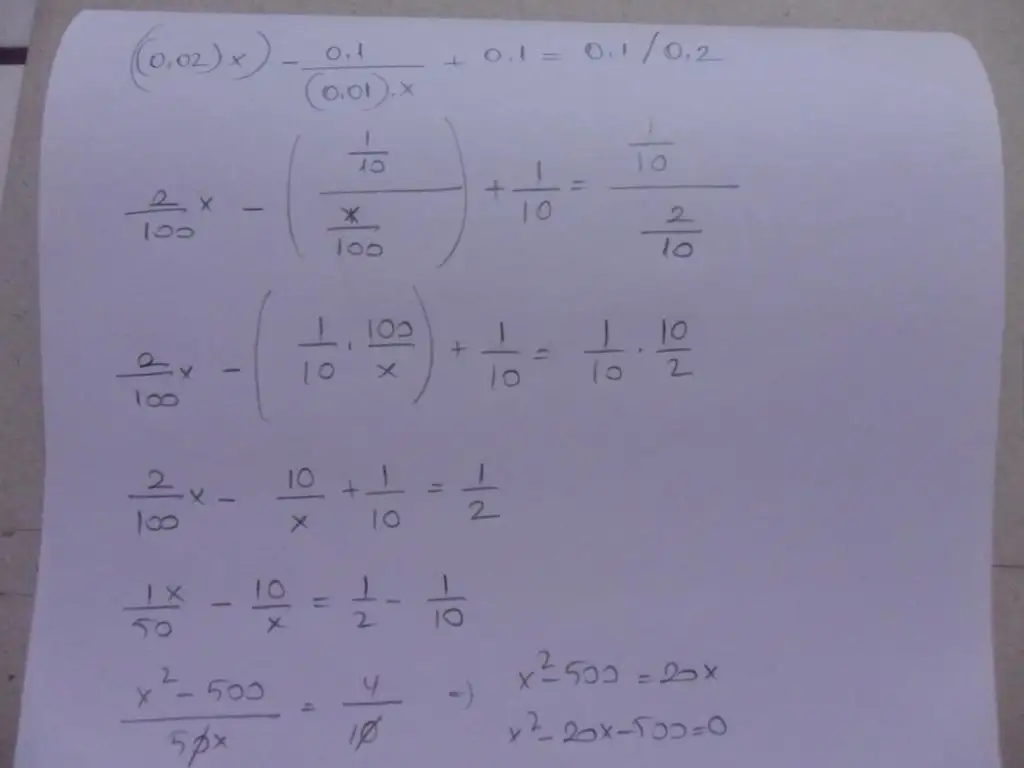 ((0.02)x) - 0.1/(0.01).x + 0.1 = 0.1/0.2
2/100 x - ((1/10)/(x/100)) + 1/10 = (1/10)/(2/10)
2/100 x - (1/10 . 100/x) + 1/10 = 1/10 . 10/2
2/100 x - 10/x + 1/10 = 1/2
1x/50 - 10/x = 1/2 - 1/10
x²-500/50x = 4/10 => x²-500 = 20x
x²-20x-500=0